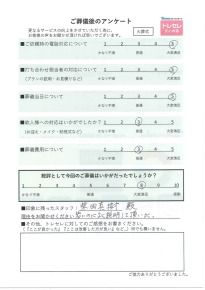 ご葬儀後のアンケート
更なるサービスの向上をさせていただく為に、
お客様の声をお聞かせいただければ幸いです。
火葬式
トレセレ
■ご依頼時の電話対応について
1 2 3 4 5
かなり不満 普通 大変満足
■打ち合わせ担当者の対応について
(プランの説明・お見積りなど)
1 2 3 4 5
かなり不満 普通 大変満足
■葬儀当日について
1 2 3 4 5
かなり不満 普通 大変満足
■故人様への対応はいかがでしたか?
(お迎え・メイク・対処式など)
1 2 3 4 5
かなり不満 普通 大変満足
■葬儀費用について
1 2 3 4 5
かなり不満 普通 大変満足
総評として今回のご葬儀はいかがだったでしょうか?
1 2 3 4 5 6 7 8 9 10
かなり不満 普通 大変満足
■印象に残ったスタッフ:
理由をお聞かせください
■その他、トレセレに対してのご感想をお書きください。
ご協力ありがとうございました。